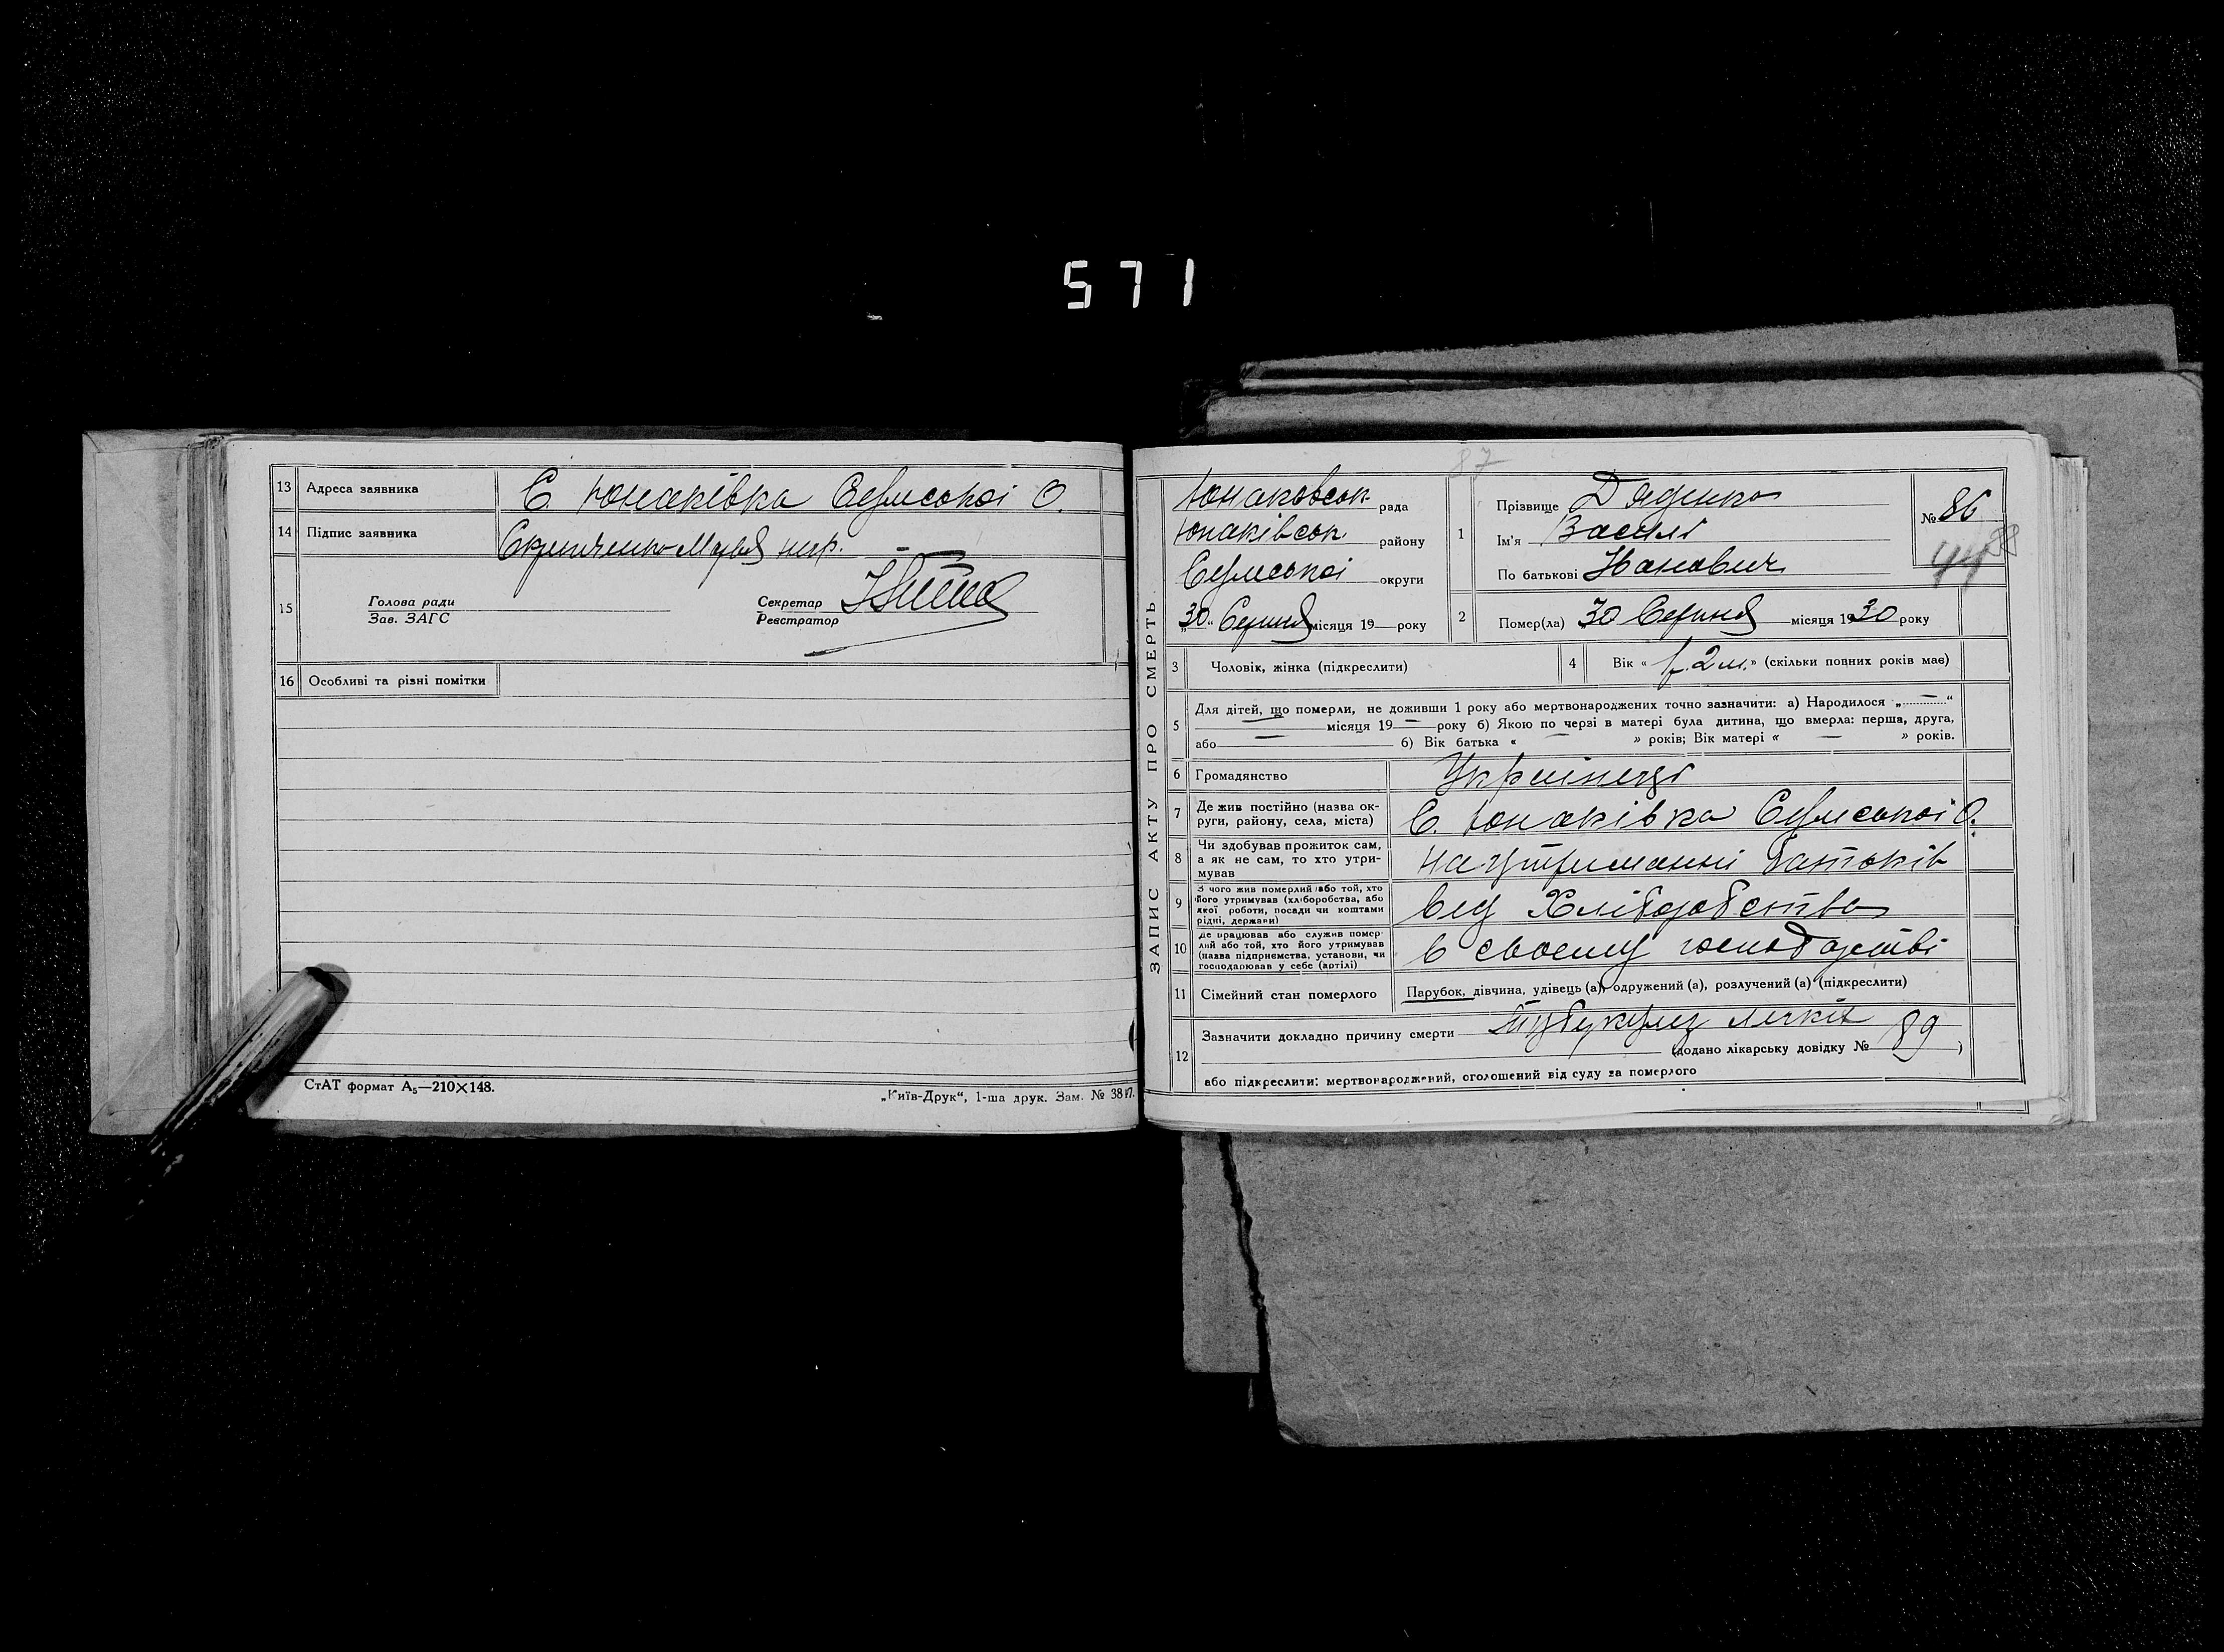 571
13 Адреса заявника С. Юнаківка Сумської О.
14 Підпис заявника Скрипченко Марія нер.
15 Голова ради Секретар
Зав. ЗАГС Реєстратор
16 Особливі та різні помітки
СтАТ формат А₅—210×148.
„Київ-Друк“, 1-ша друк. Зам. № 3817.
87
ЗАПИС АКТУ ПРО СМЕРТЬ
Юнаковськ рада
Юнаківськ району
Сумської округи
„30“ Серпня місяця 19 — року
1 Прізвище Дяденко
Ім'я Василі
По батькові Іванович
№ 86
88
44
2 Помер(ла) 30 Серпня місяця 1930 року
3 Чоловік, жінка (підкреслити)
4 Вік « 1 р. 2 м. » (скільки повних років має)
5 Для дітей, що померли, не доживши 1 року або мертвонароджених точно зазначити: а) Народилося „ — “
— місяця 19 — року б) Якою по черзі в матері була дитина, що вмерла: перша, друга,
або — б) Вік батька « — » років; Вік матері « — » років.
6 Громадянство Українеці
7 Де жив постійно (назва ок-
руги, району, села, міста) С. Юнаківка Сумської О.
8 Чи здобував прожиток сам,
а як не сам, то хто утри-
мував на утриманні батьків
9 З чого жив померлий або той, хто
його утримував (хліборобства, або
якої роботи, посади чи коштами
рідні, держави) від Хліборобства
10 Де працював або служив помер-
лий або той, хто його утримував
(назва підприємства, установи, чи
господарював у себе (артілі) в своєму господарстві
11 Сімейний стан померлого Парубок, дівчина, удівець (а), одружений (а), розлучений (а) (підкреслити)
12 Зазначити докладно причину смерти Туберкульоз легких
(додано лікарську довідку № 89 )
або підкреслити: мертвонароджений, оголошений від суду за померлого